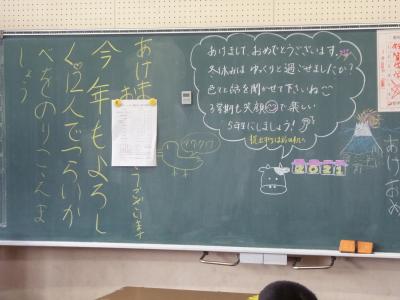 あけましておめでとうございます。
冬休みはゆっくりと過ごせましたか？
色々と話を聞かせて下さいね
3学期も笑顔で楽しい
5年生にしましょう！
2021
あけ
お
うございます
今年もよろし
く。12人でつらいか
べをのりこえま
しょう
あけおめ